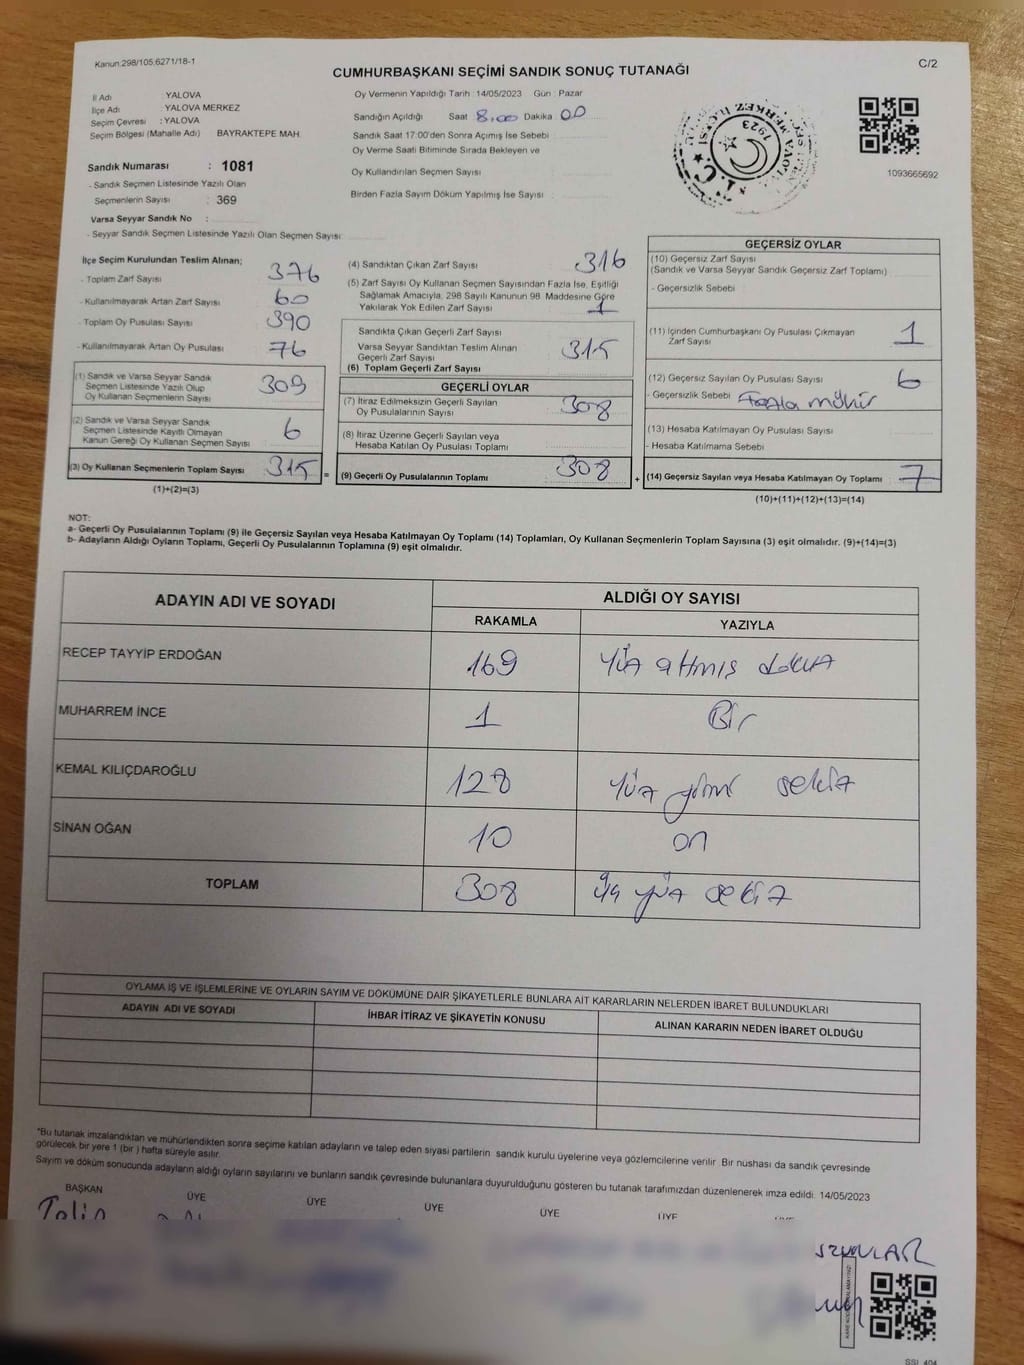 Kanun:298/105.6271/18-1
C/2
CUMHURBAŞKANI SEÇİMİ SANDIK SONUÇ TUTANAĞI
İl Adı : YALOVA
İlçe Adı : YALOVA MERKEZ
Seçim Çevresi : YALOVA
Seçim Bölgesi (Mahalle Adı) BAYRAKTEPE MAH.
Sandık Numarası : 1081
- Sandık Seçmen Listesinde Yazılı Olan
Seçmenlerin Sayısı : 369
Varsa Seyyar Sandık No :
- Seyyar Sandık Seçmen Listesinde Yazılı Olan Seçmen Sayısı:
Oy Vermenin Yapıldığı Tarih : 14/05/2023 Gün : Pazar
Sandığın Açıldığı Saat 8.00 Dakika : 00
Sandık Saat 17:00'den Sonra Açımış İse Sebebi
Oy Verme Saati Bitiminde Sırada Bekleyen ve
Oy Kullandırılan Seçmen Sayısı
Birden Fazla Sayım Döküm Yapılmış İse Sayısı :
T.C.
1923
1093665692
İlçe Seçim Kurulundan Teslim Alınan;
- Toplam Zarf Sayısı 376
- Kullanılmayarak Artan Zarf Sayısı 60
- Toplam Oy Pusulası Sayısı 390
- Kullanılmayarak Artan Oy Pusulası 76
(1) Sandık ve Varsa Seyyar Sandık
Seçmen Listesinde Yazılı Olup
Oy Kullanan Seçmenlerin Sayısı 309
(2) Sandık ve Varsa Seyyar Sandık
Seçmen Listesinde Kayıtlı Olmayan
Kanun Gereği Oy Kullanan Seçmen Sayısı 6
(3) Oy Kullanan Seçmenlerin Toplam Sayısı 315 =
(1)+(2)=(3)
(4) Sandıktan Çıkan Zarf Sayısı 316
(5) Zarf Sayısı Oy Kullanan Seçmen Sayısından Fazla İse, Eşitliği
Sağlamak Amacıyla, 298 Sayılı Kanunun 98. Maddesine Göre
Yakılarak Yok Edilen Zarf Sayısı 1
Sandıkta Çıkan Geçerli Zarf Sayısı
Varsa Seyyar Sandıktan Teslim Alınan
Geçerli Zarf Sayısı
(6) Toplam Geçerli Zarf Sayısı 315
GEÇERLİ OYLAR
(7) İtiraz Edilmeksizin Geçerli Sayılan
Oy Pusulalarının Sayısı 308
(8) İtiraz Üzerine Geçerli Sayılan veya
Hesaba Katılan Oy Pusulası Toplamı
(9) Geçerli Oy Pusulalarının Toplamı 308 +
GEÇERSİZ OYLAR
(10) Geçersiz Zarf Sayısı
(Sandık ve Varsa Seyyar Sandık Geçersiz Zarf Toplamı)
- Geçersizlik Sebebi
(11) İçinden Cumhurbaşkanı Oy Pusulası Çıkmayan
Zarf Sayısı 1
(12) Geçersiz Sayılan Oy Pusulası Sayısı 6
- Geçersizlik Sebebi Fazla mühür
(13) Hesaba Katılmayan Oy Pusulası Sayısı
- Hesaba Katılmama Sebebi
(14) Geçersiz Sayılan veya Hesaba Katılmayan Oy Toplamı 7
(10)+(11)+(12)+(13)=(14)
NOT:
a- Geçerli Oy Pusulalarının Toplamı (9) ile Geçersiz Sayılan veya Hesaba Katılmayan Oy Toplamı (14) Toplamları, Oy Kullanan Seçmenlerin Toplam Sayısına (3) eşit olmalıdır. (9)+(14)=(3)
b- Adayların Aldığı Oyların Toplamı, Geçerli Oy Pusulalarının Toplamına (9) eşit olmalıdır.
ADAYIN ADI VE SOYADI
ALDIĞI OY SAYISI
RAKAMLA YAZIYLA
RECEP TAYYİP ERDOĞAN 169 Yüz altmış dokuz
MUHARREM İNCE 1 Bir
KEMAL KILIÇDAROĞLU 128 Yüz yirmi sekiz
SİNAN OĞAN 10 on
TOPLAM 308 üç yüz sekiz
OYLAMA İŞ VE İŞLEMLERİNE VE OYLARIN SAYIM VE DÖKÜMÜNE DAİR ŞİKAYETLERLE BUNLARA AİT KARARLARIN NELERDEN İBARET BULUNDUKLARI
ADAYIN ADI VE SOYADI İHBAR İTİRAZ VE ŞİKAYETİN KONUSU ALINAN KARARIN NEDEN İBARET OLDUĞU
*Bu tutanak imzalandıktan ve mühürlendikten sonra seçime katılan adayların ve talep eden siyasi partilerin sandık kurulu üyelerine veya gözlemcilerine verilir. Bir nushası da sandık çevresinde
görülecek bir yere 1 (bir) hafta süreyle asılır.
Sayım ve döküm sonucunda adayların aldığı oyların sayılarını ve bunların sandık çevresinde bulunanlara duyurulduğunu gösteren bu tutanak tarafımızdan düzenlenerek imza edildi. 14/05/2023
BAŞKAN ÜYE ÜYE ÜYE ÜYE ÜYE